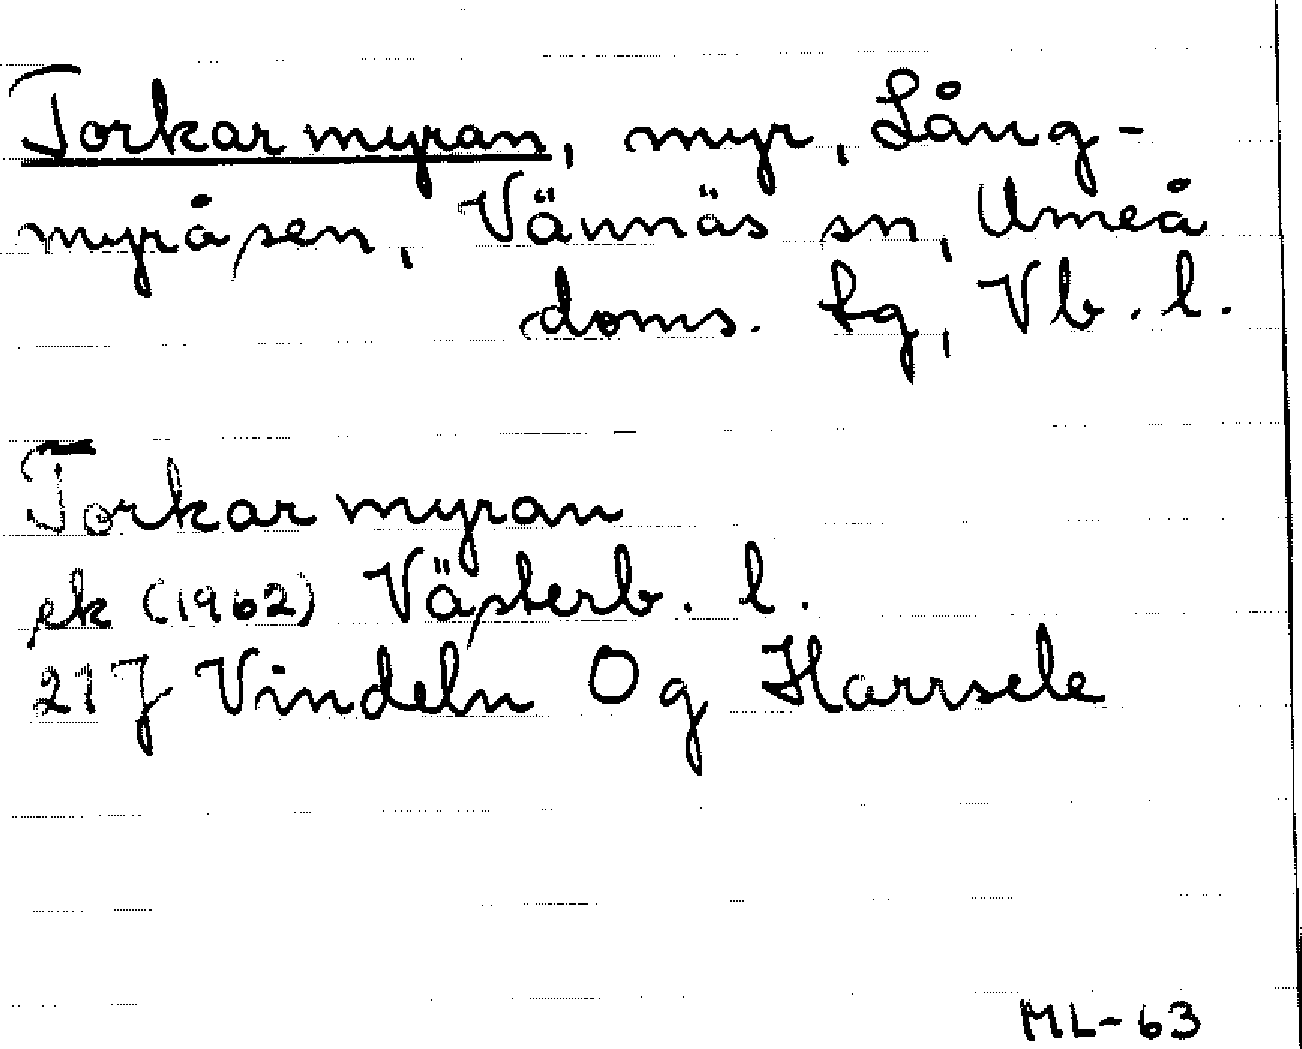 Torkarmyran, myr, Lång-
myråsen, Vännäs sn, Umeå
doms. tg, Vb. l.
Torkarmyran
ek (1962) Västerb. l.
21J Vindeln 0g Harrsele
ML-63